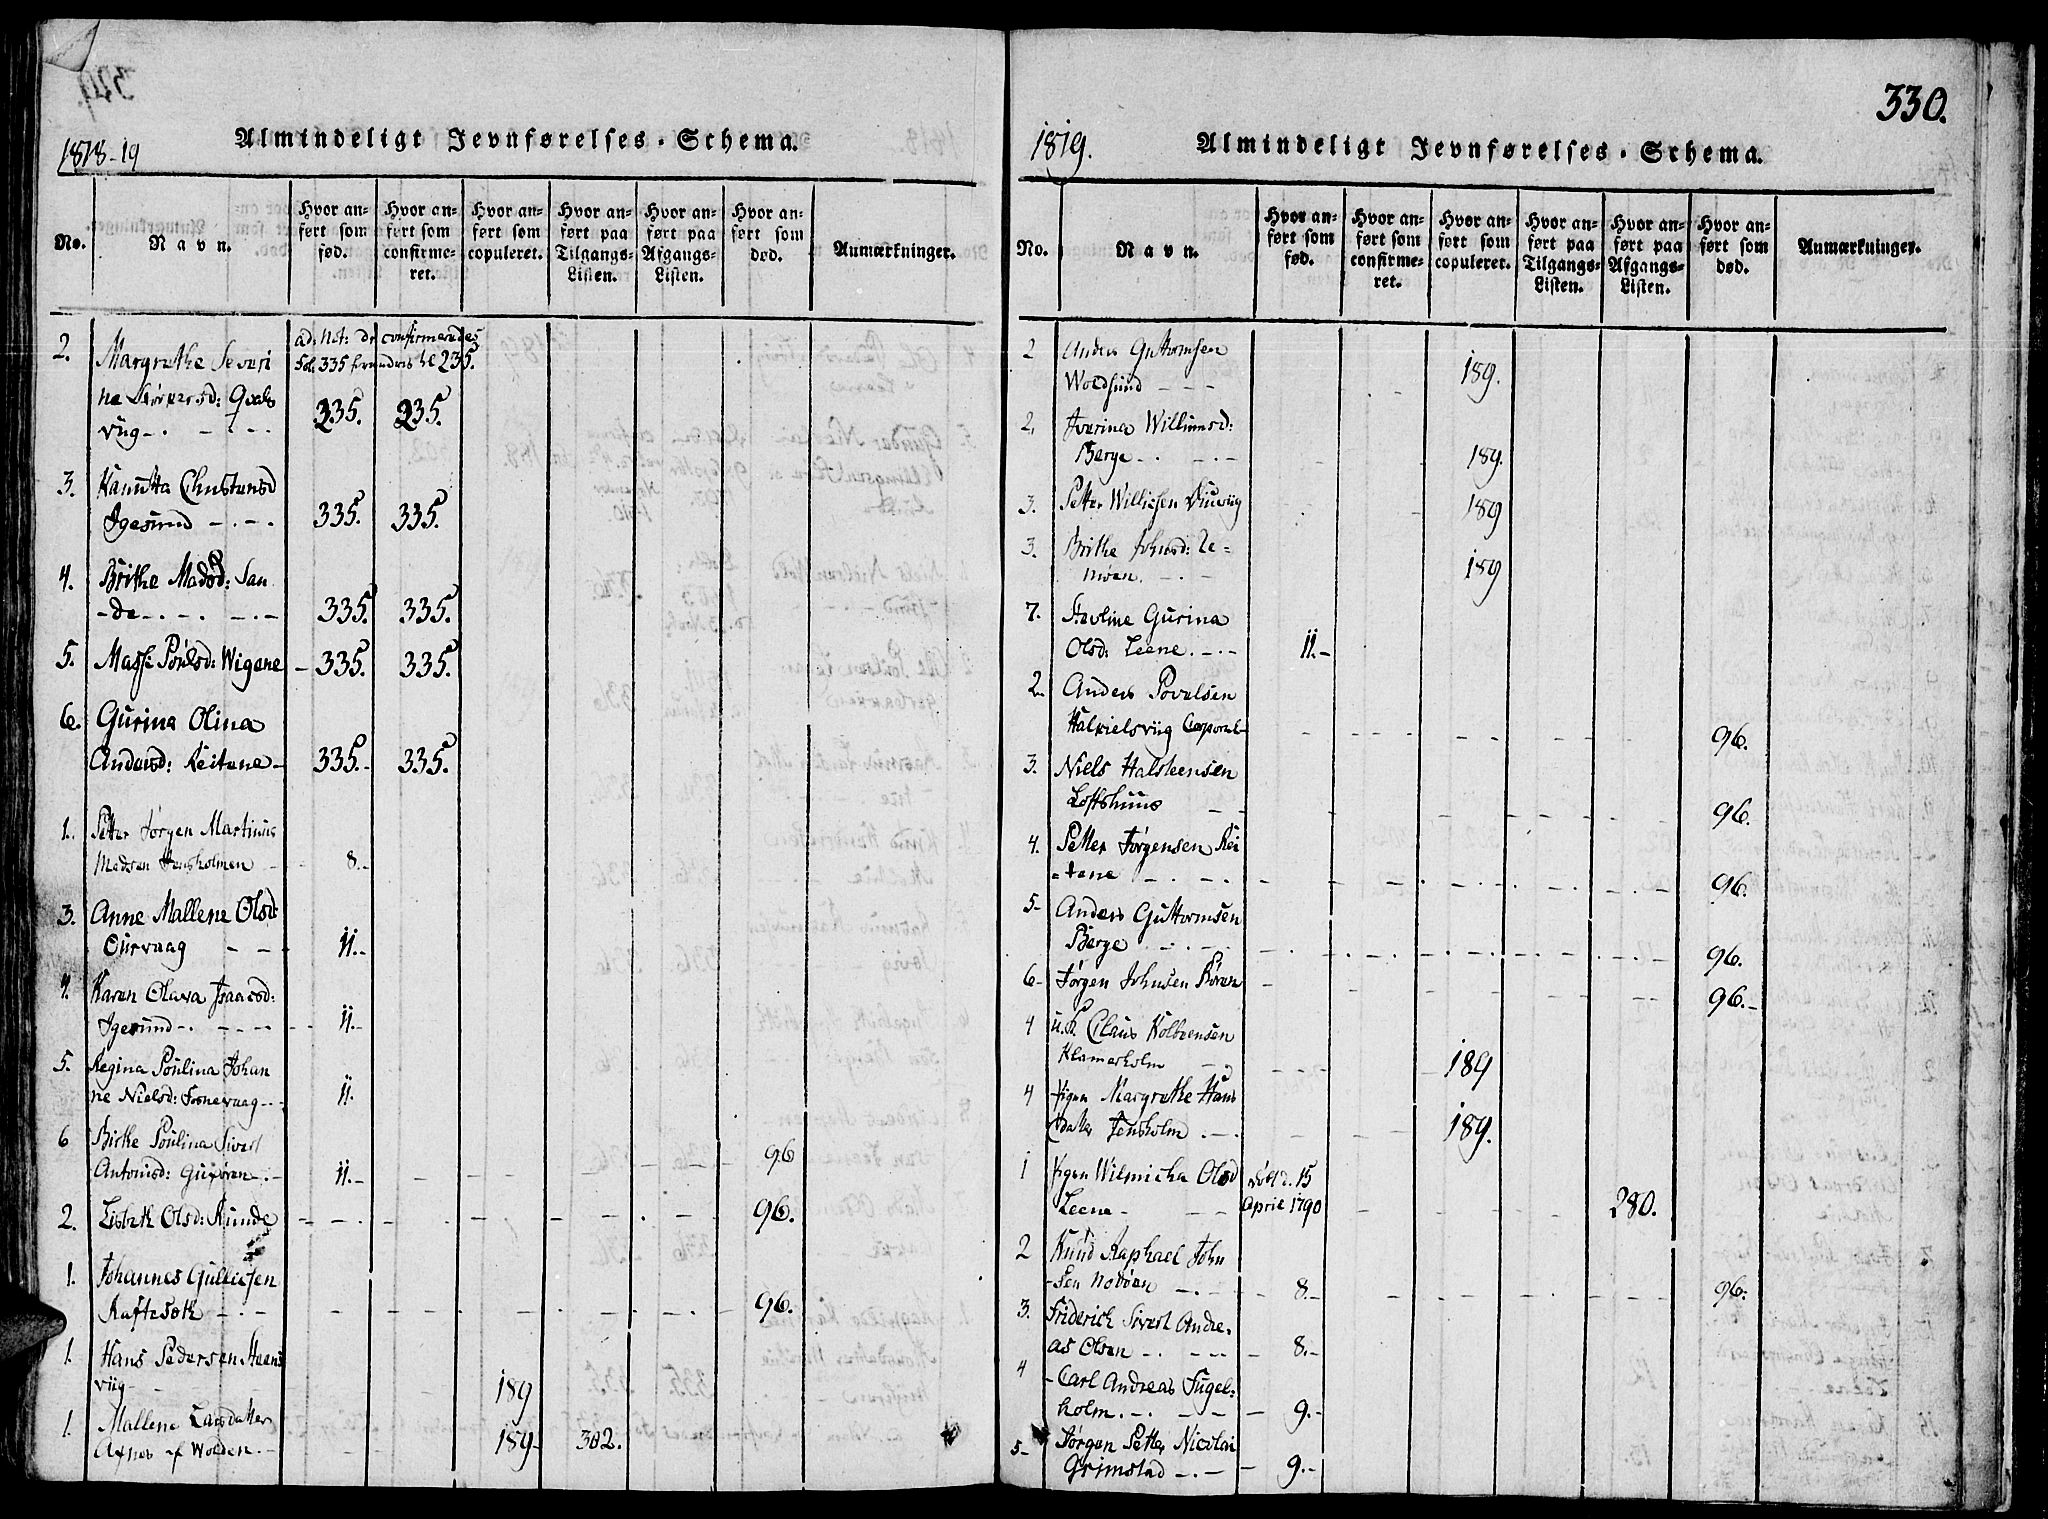 1818-19
Almindeligt Jevnførelses-Schema.
No.
Navn.
Hvor anført som fød.
Hvor anført som confirmeret.
Hvor anført som copuleret.
Hvor anført paa Tilgangs-Listen.
Hvor anført paa Afgangs-Listen.
Hvor anført som død.
Anmærkninger.
2. Margrethe Severi
ad. Not: de confirmeredes
Fol. 335 235.
ne
viig-. - . - . 335. 235.
3. Kanutta Christensd
Igesund - . - . 335. 335.
4. Brithe Madsd: San
-de-. - . - . - 335. 335.
5. Mass: Poulsd: Wigene - 335. 335.
6. Gurina Olina
Andersd: Reitene- 335.- 335.
1. Petter Jørgen Martinus
Madsen Jensholmen - 8.-
3. Anne Mallene Olsd:
Ourvaag - - - 11.-
4. Karen Olava Isaacsd:
Igesund-. - - - 11.-
5. Regina Poulina Johan
ne Nielsd: Fosnevaag-- 11.
6 Birthe Poulina Sivert
Antonisd: 11.- 96
2. Lisbeth Olsd: Kunde - 96.
1. Johannes Gullicsen
- . - 96.
1. Hans Pedersen
viig- - 189
1. Mallene Larsdatter
Axnes Wolden.- 189- 302.
330.
1819.
Almindeligt Jevnførelses-Schema.
No.
Navn.
Hvor anført som fød.
Hvor anført som confirmeret.
Hvor anført som copuleret.
Hvor anført paa Tilgangs-Listen.
Hvor anført paa Afgangs-Listen.
Hvor anført som død.
Anmærkninger.
2 Anders Guttormsen
Woldsund - - - 189.
2. Iverina Willumsd:
Berge - . - . - 189.
3. Petter Willicsen 189
3. Brithe Johnsd: Le-
møen. - . - 189
7. Gurina
Olsd: Leene. - . - 11.-
2. Anders Povelsen
Corporal- 96.
3. Niels Halsteensen
Loftshuus - - 96.
4. Petter Jørgensen Rei
=tene - . - . 96.
5- Anders Guttormsen
Berge . - . - . 96.
6- Jørgen Johnsen 96.-
4 u. k. Claus Kolbensen
- - 189
4 Pigen Margrethe Hans
datter Jensholm . - . 189.
1 Pigen Wilmicha Olsd født d. 15
Leene- - - April 1790 280.
2 Knud Raphael John
-sen - . - 8- 96.
3. Friderich Sivert Andre-
as Olsen - . - - - 8.-
4 -Carl Andreas Fugel-
holm. - . - - - 9.-
5- Jørgen Petter Nicolai
Grimstad - . - - 9.-